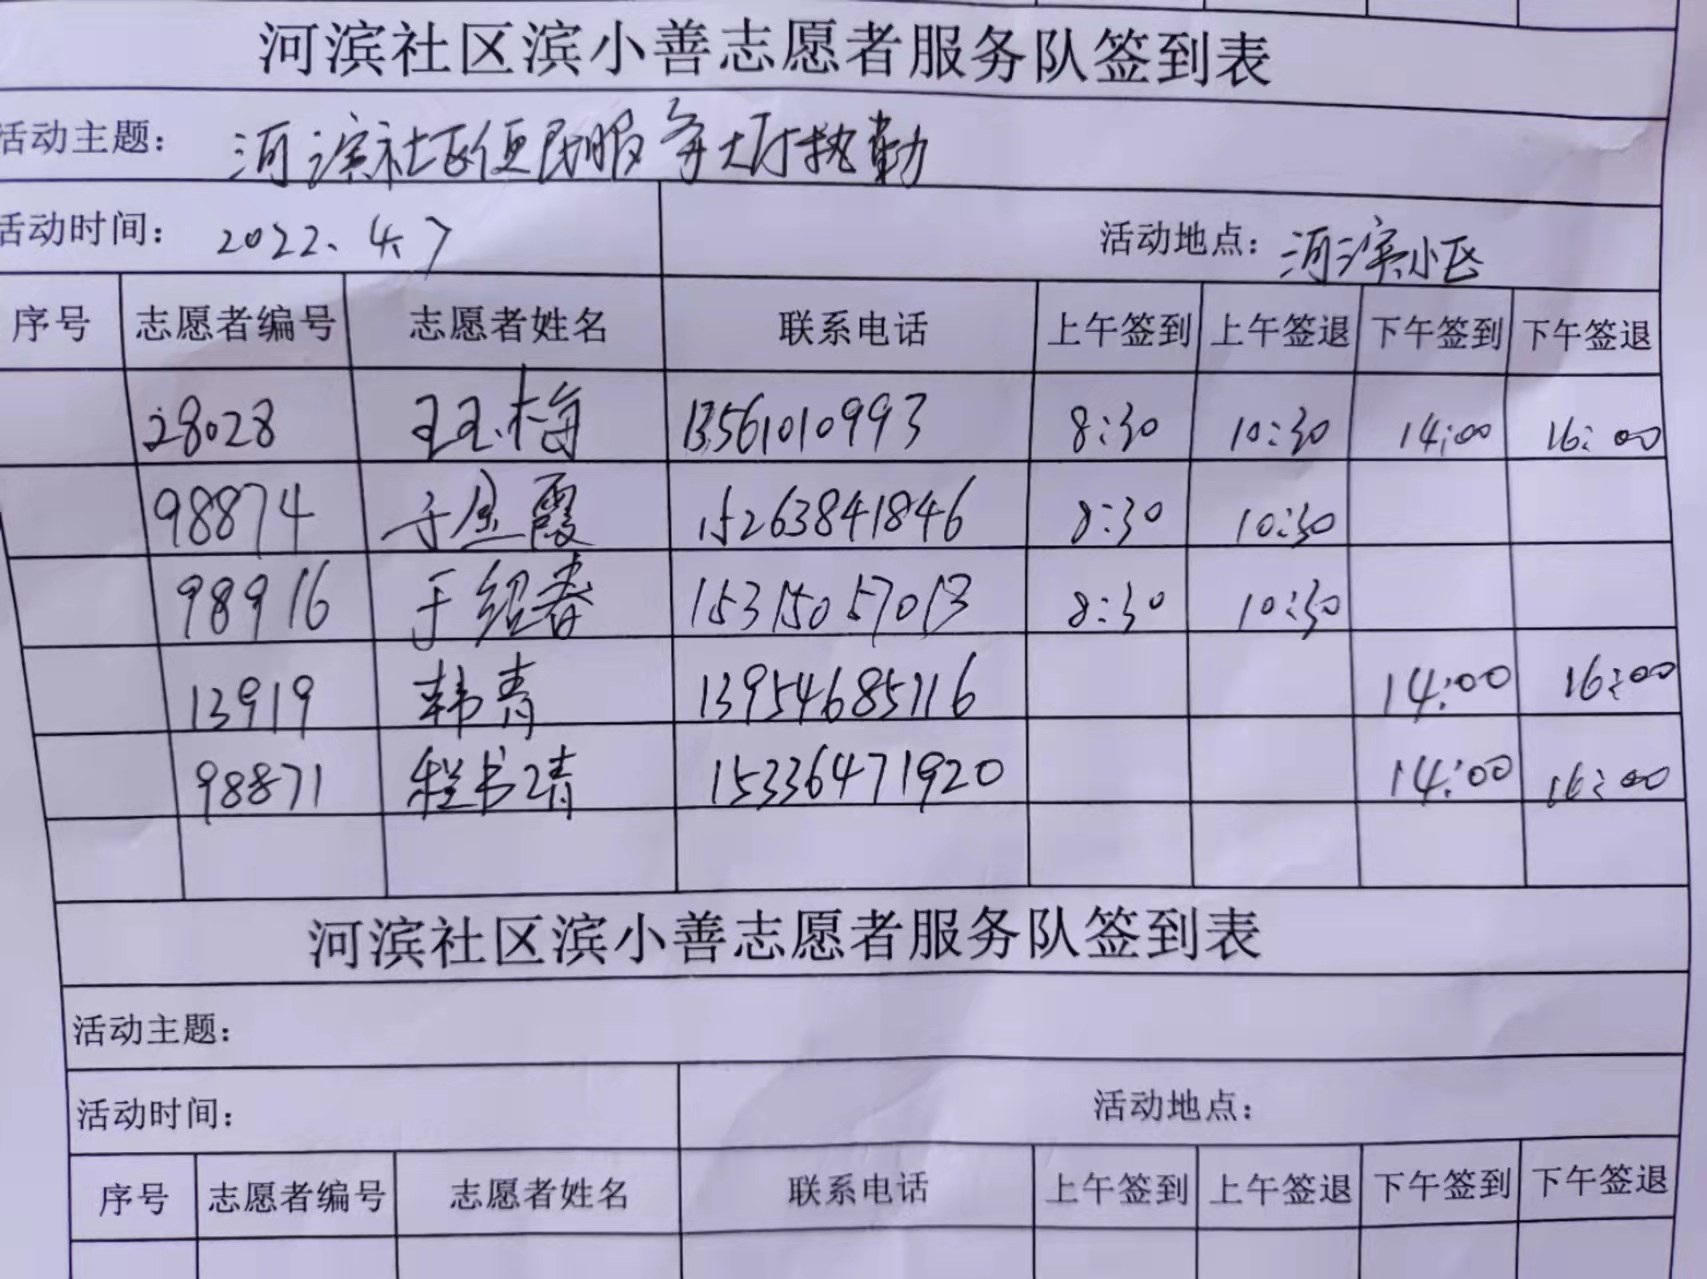 河滨社区滨小善志愿者服务队签到表
活动主题： 河滨社区便民服务大厅执勤
活动时间： 2022.4.7 活动地点： 河滨小区
序号 志愿者编号 志愿者姓名 联系电话 上午签到 上午签退 下午签到 下午签退
28028 王玉梅 13561010993 8:30 10:30 14:00 16:00
98874 于金霞 15263841846 8:30 10:30
98916 于绍春 15315057013 8:30 10:30
13919 韩青 13954685716 14:00 16:00
98871 程书靖 15336471920 14:00 16:00
河滨社区滨小善志愿者服务队签到表
活动主题：
活动时间： 活动地点：
序号 志愿者编号 志愿者姓名 联系电话 上午签到 上午签退 下午签到 下午签退